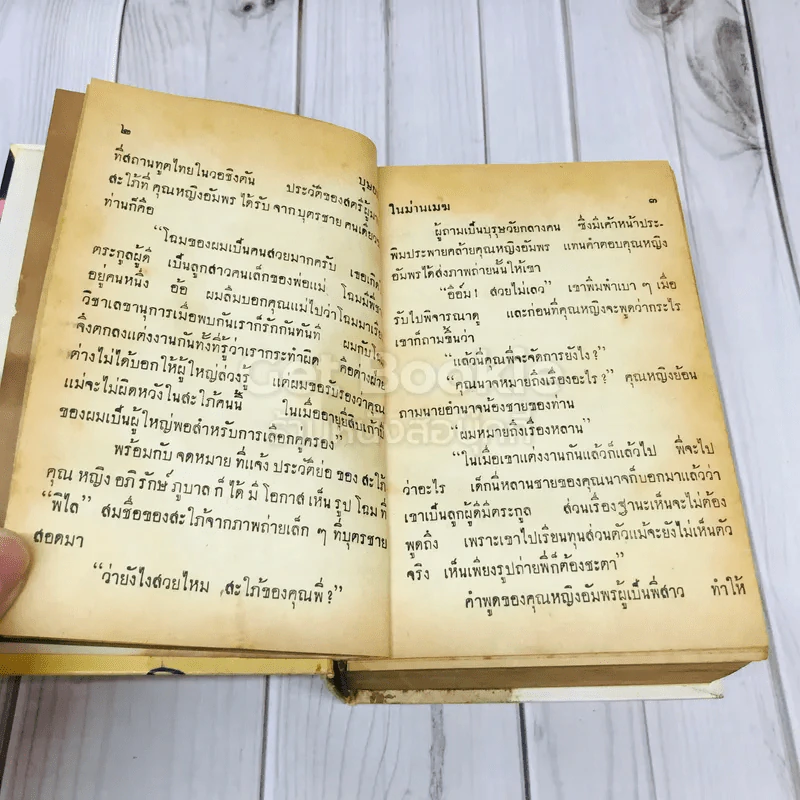 ๒
บุษบ
ที่สถานทูตไทยในวอชิงตัน ประวัติของสตรีผู้มา
สะใภ้ที่คุณหญิงอัมพรได้รับ จากบุตรชายคนเดียวของ
ท่านก็คือ
“โฉมของผมเป็นคนสวยมากครับ เธอเกิด
ตระกูลผู้ดี เป็นลูกสาวคนเล็กของพ่อแม่ โฉมมีพี่ชาย
อยู่คนหนึ่ง อ้อ ผมลืมบอกคุณแม่ไปว่าโฉมมาเรียน
วิชาเลขานุการเมื่อพบกันเราก็รักกันทันที ผมกับโฉม
จึงตกลงแต่งงานกันทั้งที่รู้ว่าเรากระทำผิด คือต่างฝ่าย
ต่างไม่ได้บอกให้ผู้ใหญ่ล่วงรู้ แต่ผมขอรับรองว่าคุณ
แม่จะไม่ผิดหวังในสะใภ้คนนี้ ในเมื่ออายุยี่สิบเก้าปี
ของผมเป็นผู้ใหญ่พอสำหรับการเลือกคู่ครอง”
พร้อมกับ จดหมาย ที่แจ้ง ประวัติย่อ ของ สะใภ้
คุณ หญิง อภิ รักษ์ ภูบาล ก็ ได้ มี โอกาส เห็น รูป โฉม ที่
“พิไล” สมชื่อของสะใภ้จากภาพถ่ายเล็ก ๆ ที่บุตรชาย
สอดมา
“ว่ายังไงสวยไหม สะใภ้ของคุณพี่?”
ในม่านเมฆ
๓
ผู้ถามเป็นบุรุษวัยกลางคน ซึ่งมีเค้าหน้าประ-
พิมประพายคล้ายคุณหญิงอัมพร แทนคำตอบคุณหญิง
อัมพรได้ส่งภาพถ่ายนั้นให้เขา
“อือ์ม! สวยไม่เลว” เขาพึมพำเบา ๆ เมื่อ
รับไปพิจารณาดู และก่อนที่คุณหญิงจะพูดว่ากระไร
เขาก็ถามขึ้นว่า
“แล้วนี่คุณพี่จะจัดการยังไง?”
“คุณนาจหมายถึงเรื่องอะไร?” คุณหญิงย้อน
ถามนายอำนาจน้องชายของท่าน
“ผมหมายถึงเรื่องหลาน”
“ในเมื่อเขาแต่งงานกันแล้วก็แล้วไป พี่จะไป
ว่าอะไร เด็กนี่หลานชายของคุณนาจก็บอกมาแล้วว่า
เขาเป็นลูกผู้ดีมีตระกูล ส่วนเรื่องฐานะเห็นจะไม่ต้อง
พูดถึง เพราะเขาไปเรียนทุนส่วนตัวแม้จะยังไม่เห็นตัว
จริง เห็นเพียงรูปถ่ายพี่ก็ต้องชะตา”
คำพูดของคุณหญิงอัมพรผู้เป็นพี่สาว ทำให้